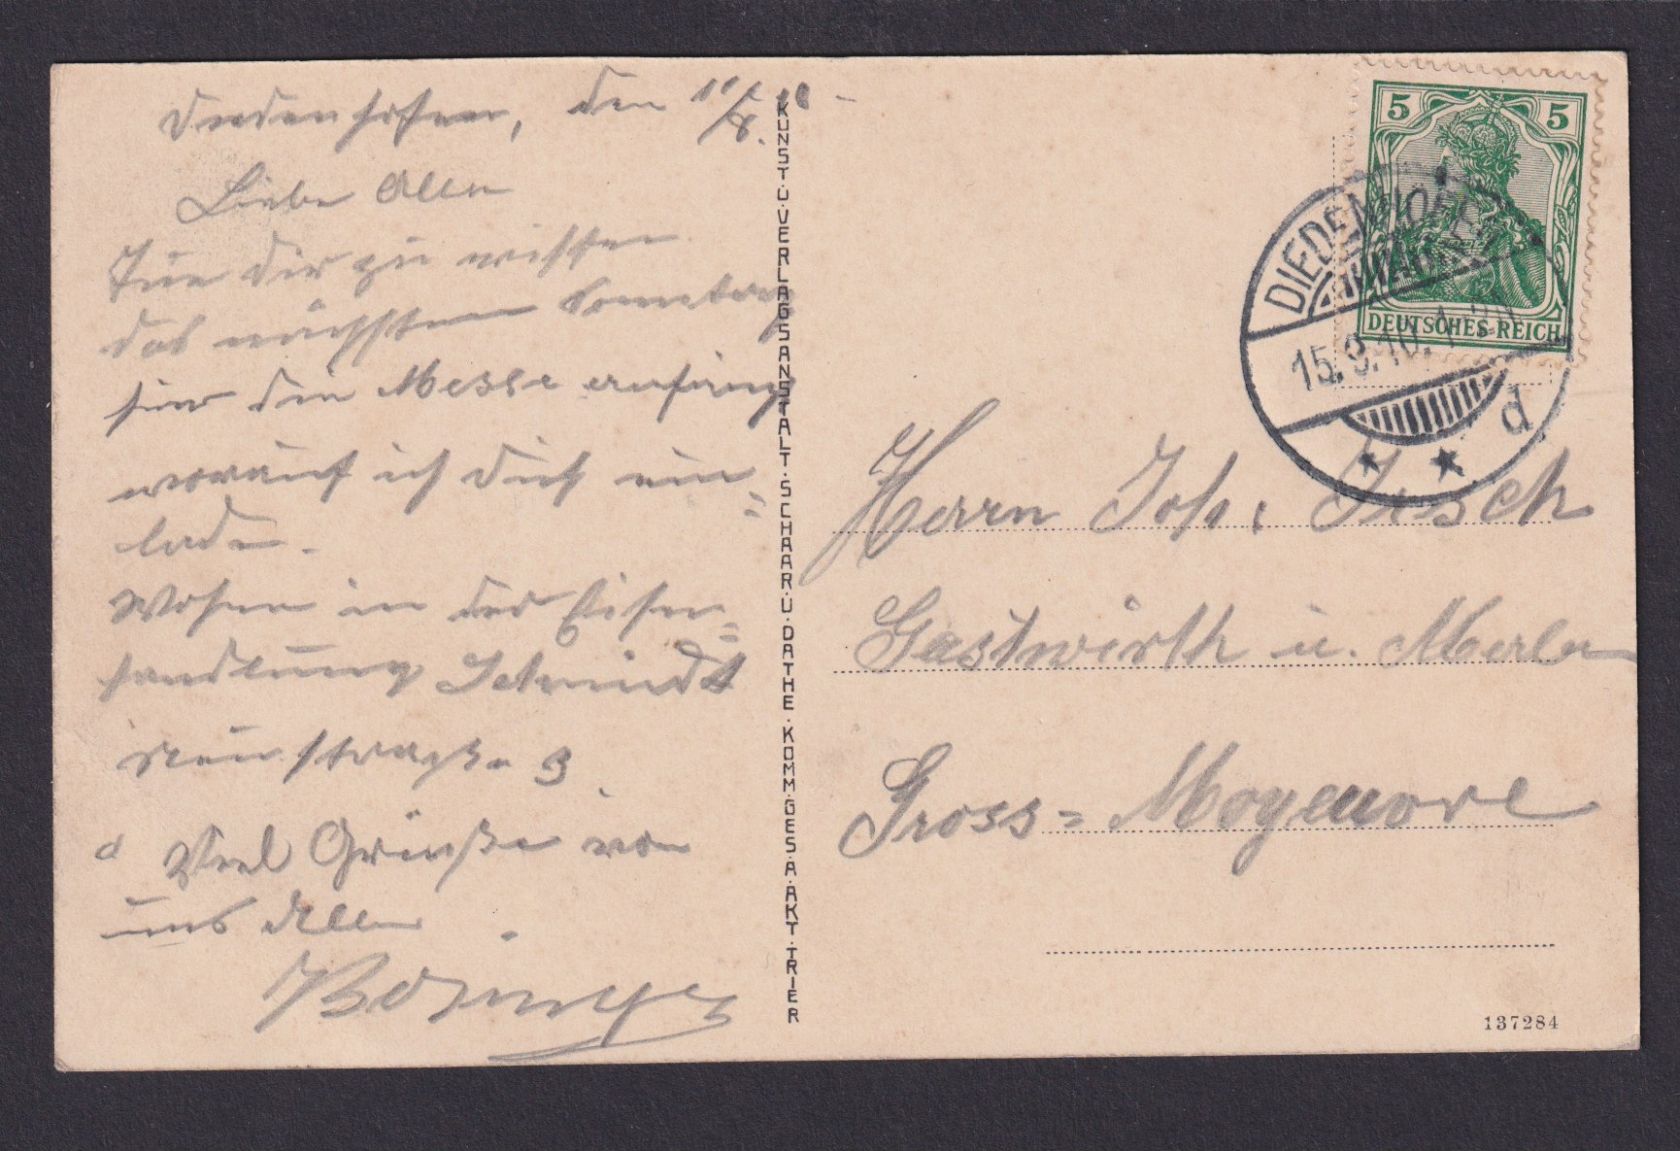 Diedenhofen, den
Liebe Allen
Tue dir zu wissen
das nächsten Sonntag
hier die Messe anfängt
worauf ich dich ein=
lade.
Wohnen in der Eisen=
handlung Schmidt
Neustraße 3
Viel Grüße von
uns Allen
KUNST.U.VERLAGSANSTALT.SCHAAR.U.DATHE.KOMM.GES.A.AKT.TRIER
5 5
DEUTSCHES REICH
DIEDENHOFEN
15.9.10.
d
Herrn Joh:
Gastwirth u.
Gross=Moyeuvre
137284